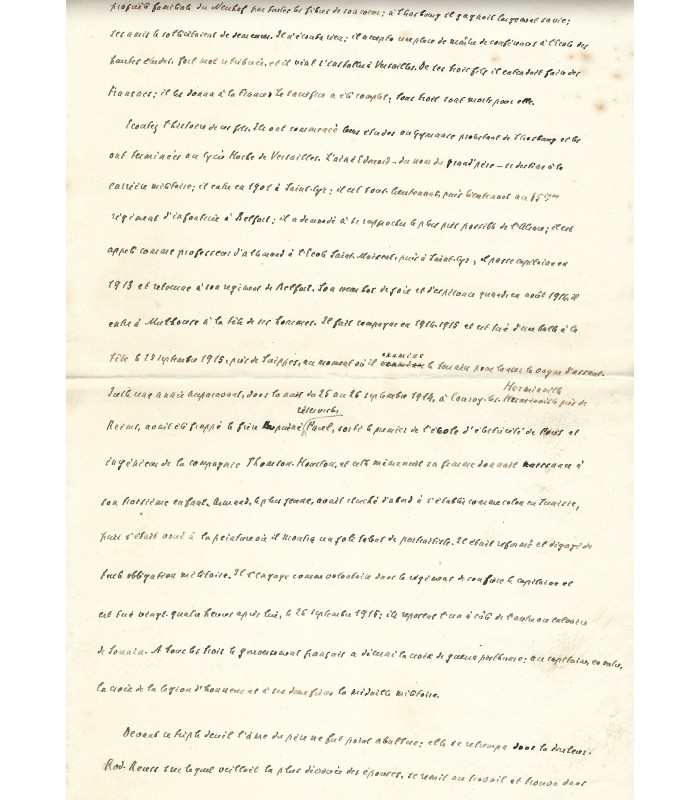 propriété familiale du Neuhof par toutes les fibres de son cœur; à Strasbourg il gagnait largement sa vie;
ses amis le sollicitaient de demeurer. Il n'écouta rien; il accepta une place de maître de conférences à l'école des
hautes études, fort mal rétribuée, et il vint s'installer à Versailles. De ses trois fils il entendait faire des
Français; il les donna à la France. Le sacrifice a été complet; tous trois sont morts pour elle.
Ecoutez l'histoire de ces fils. Ils ont commencé leurs études au Gymnase protestant de Strasbourg et les
ont terminées au lycée Hoche de Versailles. L'aîné Edmond - du nom du grand'père - se destine à la
carrière militaire; il entre en 1901 à Saint-Cyr; il est sous-lieutenant, puis lieutenant au
régiment d'infanterie à Belfort; il a demandé à se rapprocher le plus près possible de l'Alsace; il est
appelé comme professeur d'allemand à l'école Saint-Maixent, puis à Saint-Cyr, il passe capitaine en
1913 et retourne à son régiment de Belfort. Son cœur bat de joie et d'espérance quand, en août 1914, il
entre à Mulhouse à la tête de ses hommes. Il fait campagne en 1914-1915 et est tué d'une balle à la
tête le 25 septembre 1915, près de Suippes, au moment où il examine le terrain pour lancer la vague d'assaut.
Juste une année auparavant, dans la nuit du 25 au 26 septembre 1914, à Cauroy-les-Hermonville près de
Reims, avait été frappé le frère puîné Paul, sorti le premier de l'école d'électricité de Paris et
ingénieur de la compagnie Thomson-Houston, et cette même nuit sa femme donnait naissance à
son troisième enfant. Armand, le plus jeune, avait cherché d'abord à s'établir comme colon en Tunisie,
puis s'était voué à la peinture où il montra un joli talent de portraitiste. Il était réformé et dégagé de
toute obligation militaire. Il s'engage comme volontaire dans le régiment de son frère le capitaine et
est tué vingt-quatre heures après lui, le 26 septembre 1915; ils reposent l'un à côté de l'autre au calvaire
de Souain. A tous les trois le gouvernement français a décerné la croix de guerre posthume; au capitaine, en outre,
la croix de la légion d'honneur et à ses deux frères la médaille militaire.
Devant ce triple deuil l'âme du père ne fut point abattue; elle se retrempa dans la douleur.
Rod. Reuss sur lequel veillait la plus dévouée des épouses, se remit au travail et trouva dans